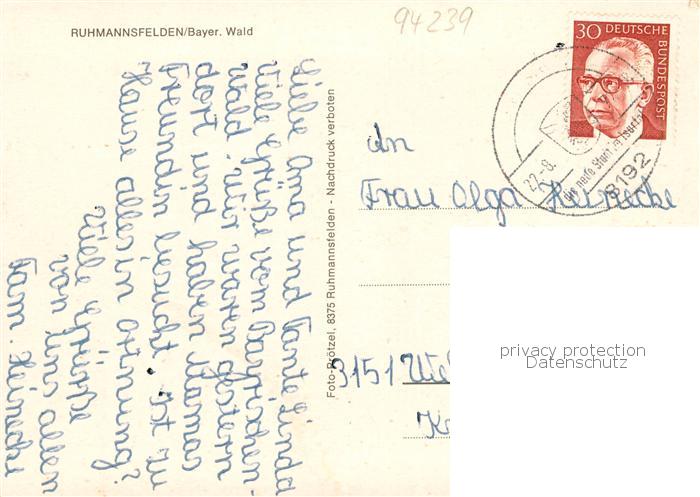 94239
RUHMANNSFELDEN/Bayer. Wald
Liebe Oma und Tante Linda
Viele Grüße vom Bayrischen-
wald. Wir waren gestern
dort und haben Mamas
Freundin besucht. Ist zu
Hause alles in Ordnung?
Viele Grüße
von uns allen
Fam. Heinecke
Foto-Prötzel, 8375 Ruhmannsfelden - Nachdruck verboten
30 DEUTSCHE
BUNDESPOST
22.-8.
die neue Stadt im Isartal
8192
An
Frau Olga Heinecke
3151
privacy protection
Datenschutz